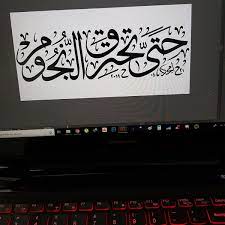 حتى تحترق النجوم